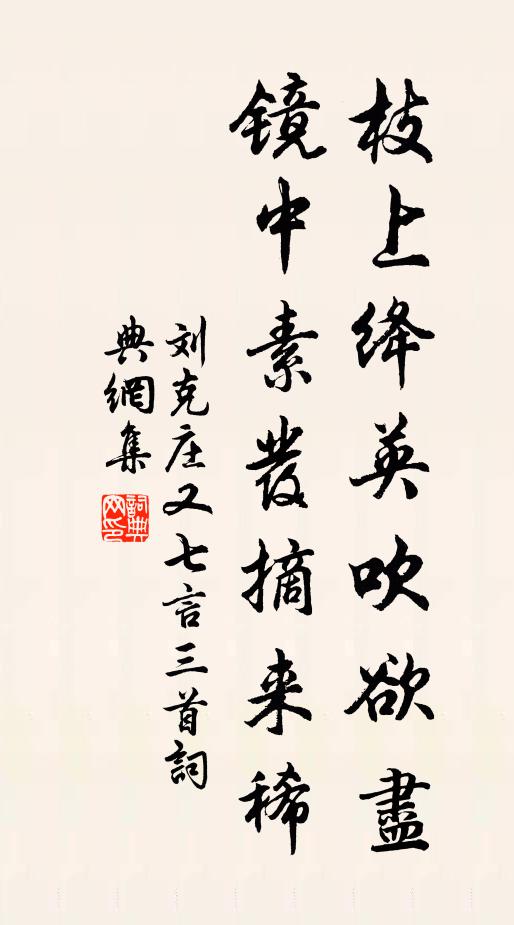 枝上绛英吹欲盡
镜中素發摘来稀
刘克庄又七言三首詞
典網集
詞典网印